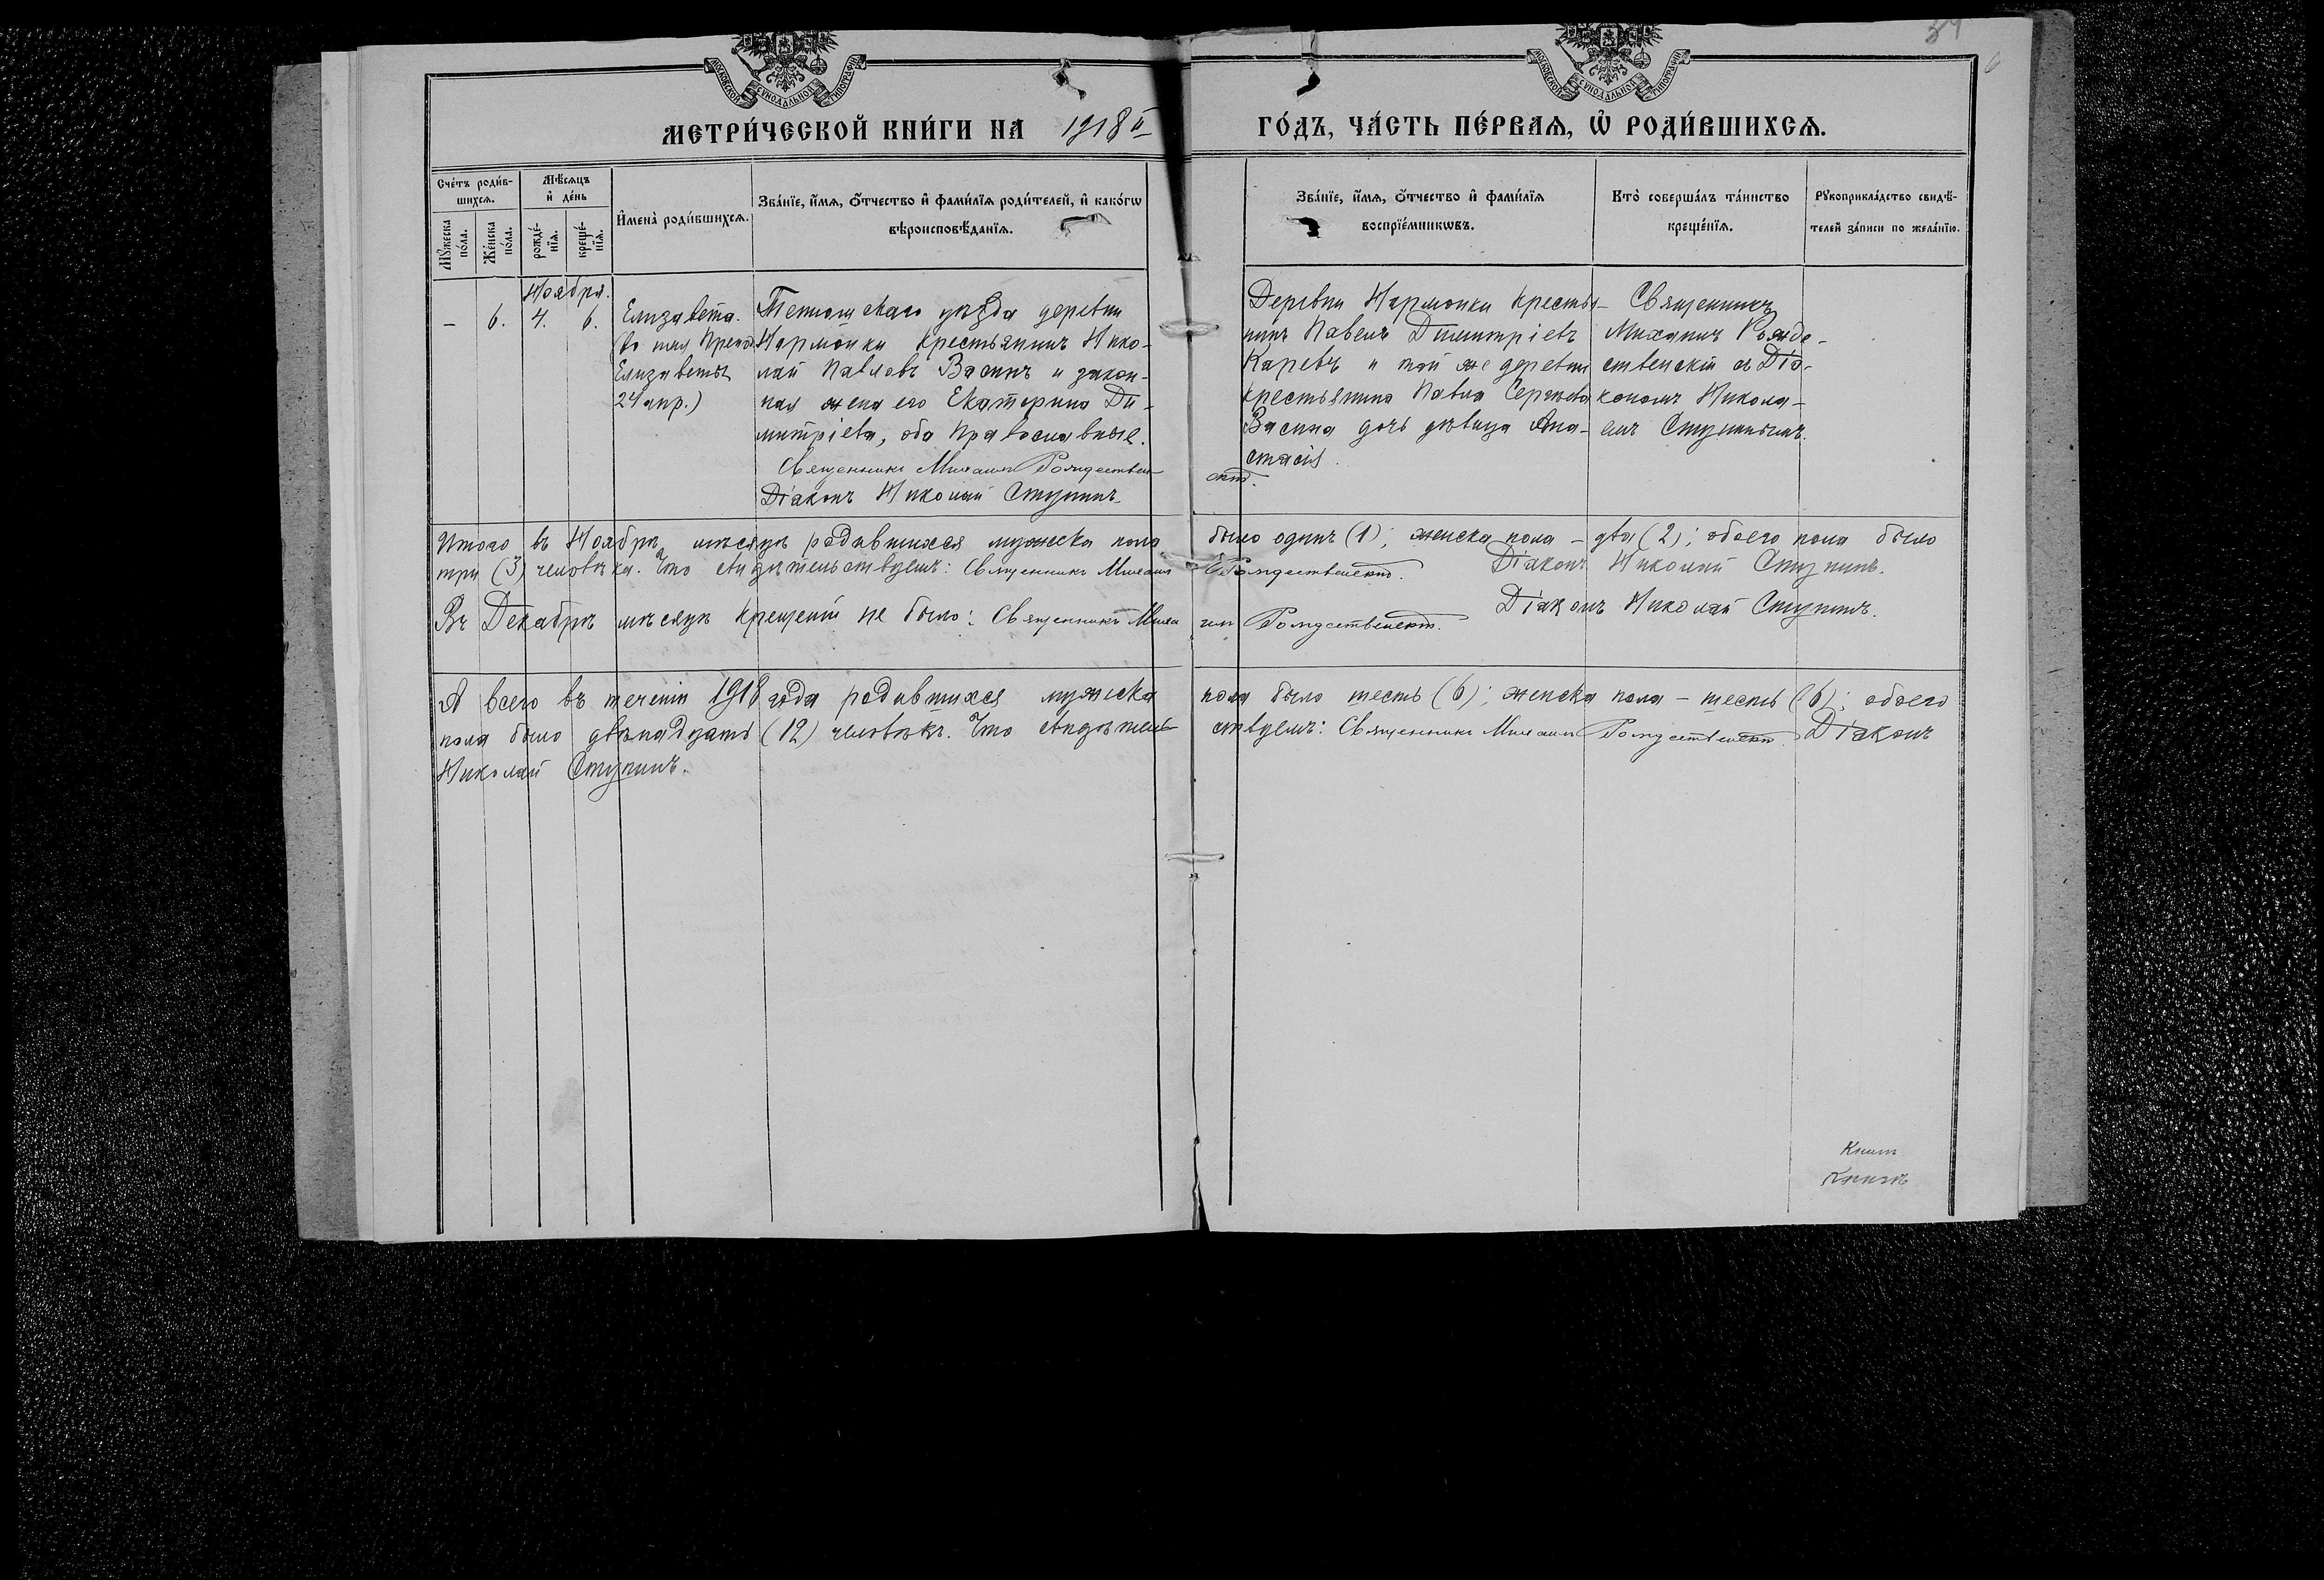 34
6
МОСКОВСКОЙ СѴНОДАЛЬНОЙ ТИПОГРАФІИ
МОСКОВСКОЙ СѴНОДАЛЬНОЙ ТИПОГРАФІИ
МЕТРИ́ЧЕСКОЙ КНИ́ГИ НА 1918й
ГО́ДЪ, ЧА́СТЬ ПЕ́РВАЯ, Ѡ҆ РОДИ́ВШИХСЯ.
Сче́тъ роди́в-
шихся.
Мѣ́сяцъ
и҆ де́нь
Мꙋ́жеска
по́ла.
Же́нска
по́ла.
рожде́-
нїя.
креще́-
нїя.
И҆мена̀ роди́вшихся.
Зва́нїе, и҆́мя, ѻ҆́тчество и҆ фами́лїя роди́телей, и҆ како́гѡ
вѣроисповѣ́данїя.
Зва́нїе, и҆́мя, ѻ҆́тчество и҆ фами́лїя
воспрїе́мникѡвъ.
Кто̀ соверша́лъ та́инство
креще́нїя.
Рꙋкоприкла́дство свидѣ́-
телей за́писи по жела́нїю.
Ноября.
– 6. 4. 6.
Елизавета.
(Во имя Препод.
Елизаветы
24 апр.)
уѣзда деревни
Нармонки крестьянинъ Нико-
лай Павловъ Васинъ и закон-
ная жена его Екатерина Ди-
митріева, оба православные.
Священникъ Михаилъ Рождествен-
скій.
Діаконъ Николай Ступинъ.
Деревни Нармонки крестья-
нинъ Павелъ Димитріевъ
Каревъ и той же деревни
крестьянина Павла Сергѣева
Васина дочь дѣвица Ана-
стасія.
Священникъ
Михаилъ Рожде-
ственскій съ Діа-
кономъ Никола-
емъ Ступинымъ.
Итого въ Ноябрѣ мѣсяцѣ родившихся мужеска пола было одинъ (1); женска пола – два (2); обоего пола было
три (3) человѣка. Что свидѣтельствуемъ: Священникъ Михаилъ Рождественскій. Діаконъ Николай Ступинъ.
Въ Декабрѣ мѣсяцѣ крещеній не было: Священникъ Михаилъ Рождественскій. Діаконъ Николай Ступинъ.
А всего въ теченіи 1918 года родившихся мужеска пола было шесть (6); женска пола – шесть (6); обоего
пола было двѣнадцать (12) человѣкъ. Что свидѣтельствуемъ: Священникъ Михаилъ Рождественскій. Діаконъ
Николай Ступинъ.